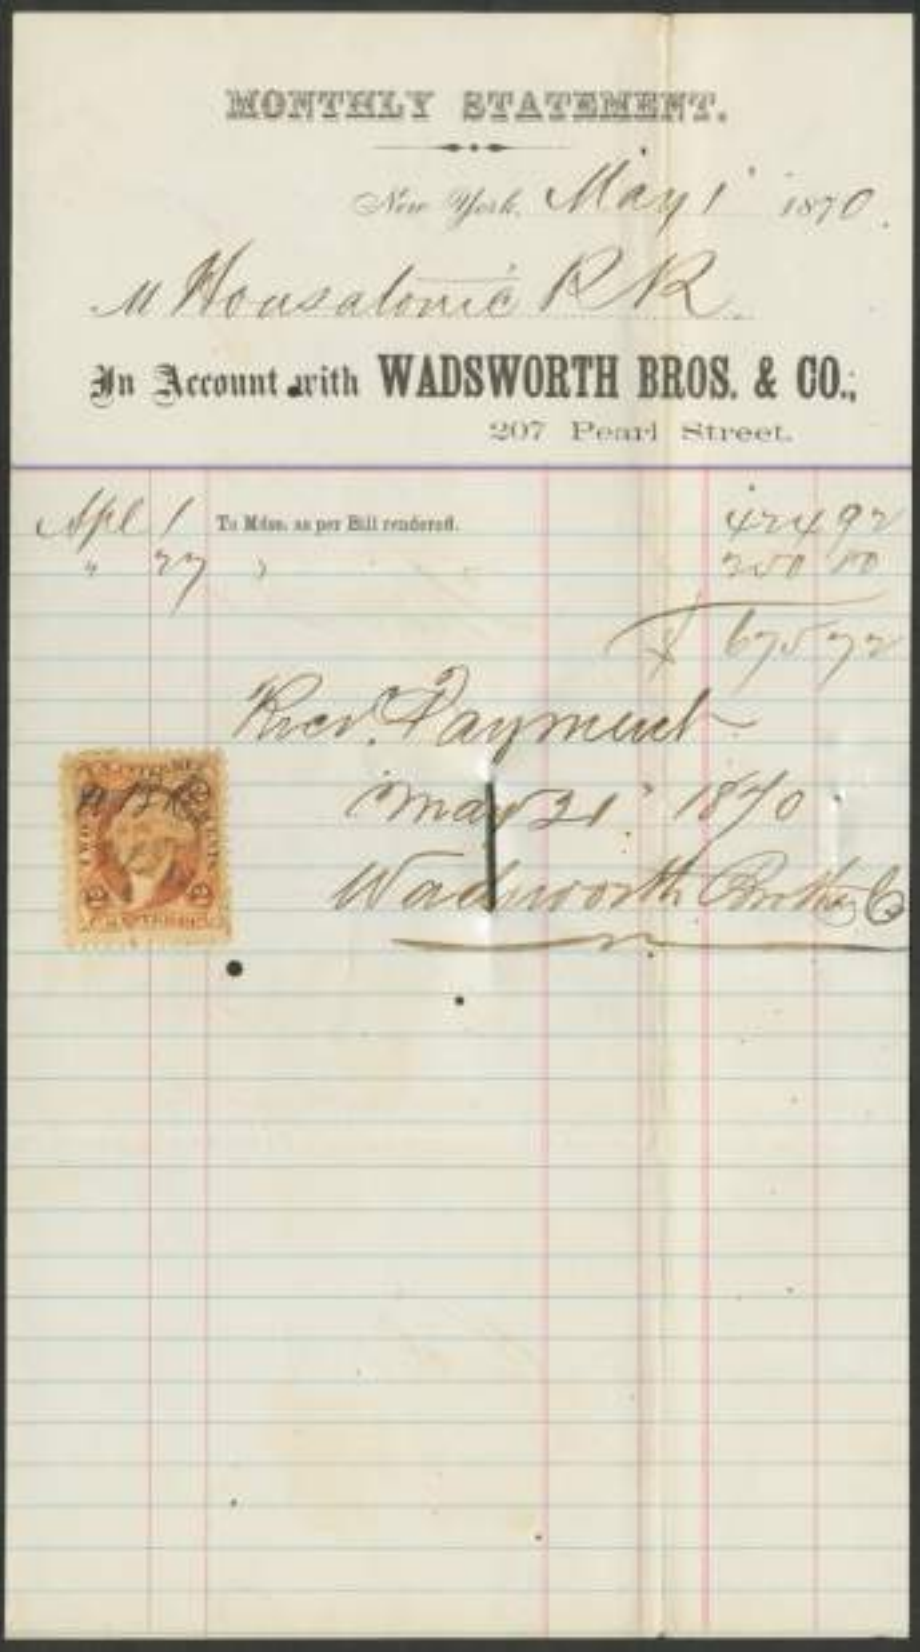 MONTHLY STATEMENT.
New York, May 1st 1870.
M Housatonic RR
In Account with WADSWORTH BROS. & CO.,
207 Pearl Street.
Apl 1 To Mdse. as per Bill rendered. 424 92
" 27 " 250 80
$ 675 72
Recd. Payment
May 21st 1870
Wadsworth Brothers & Co
U.S. INTER. REV.
2 2